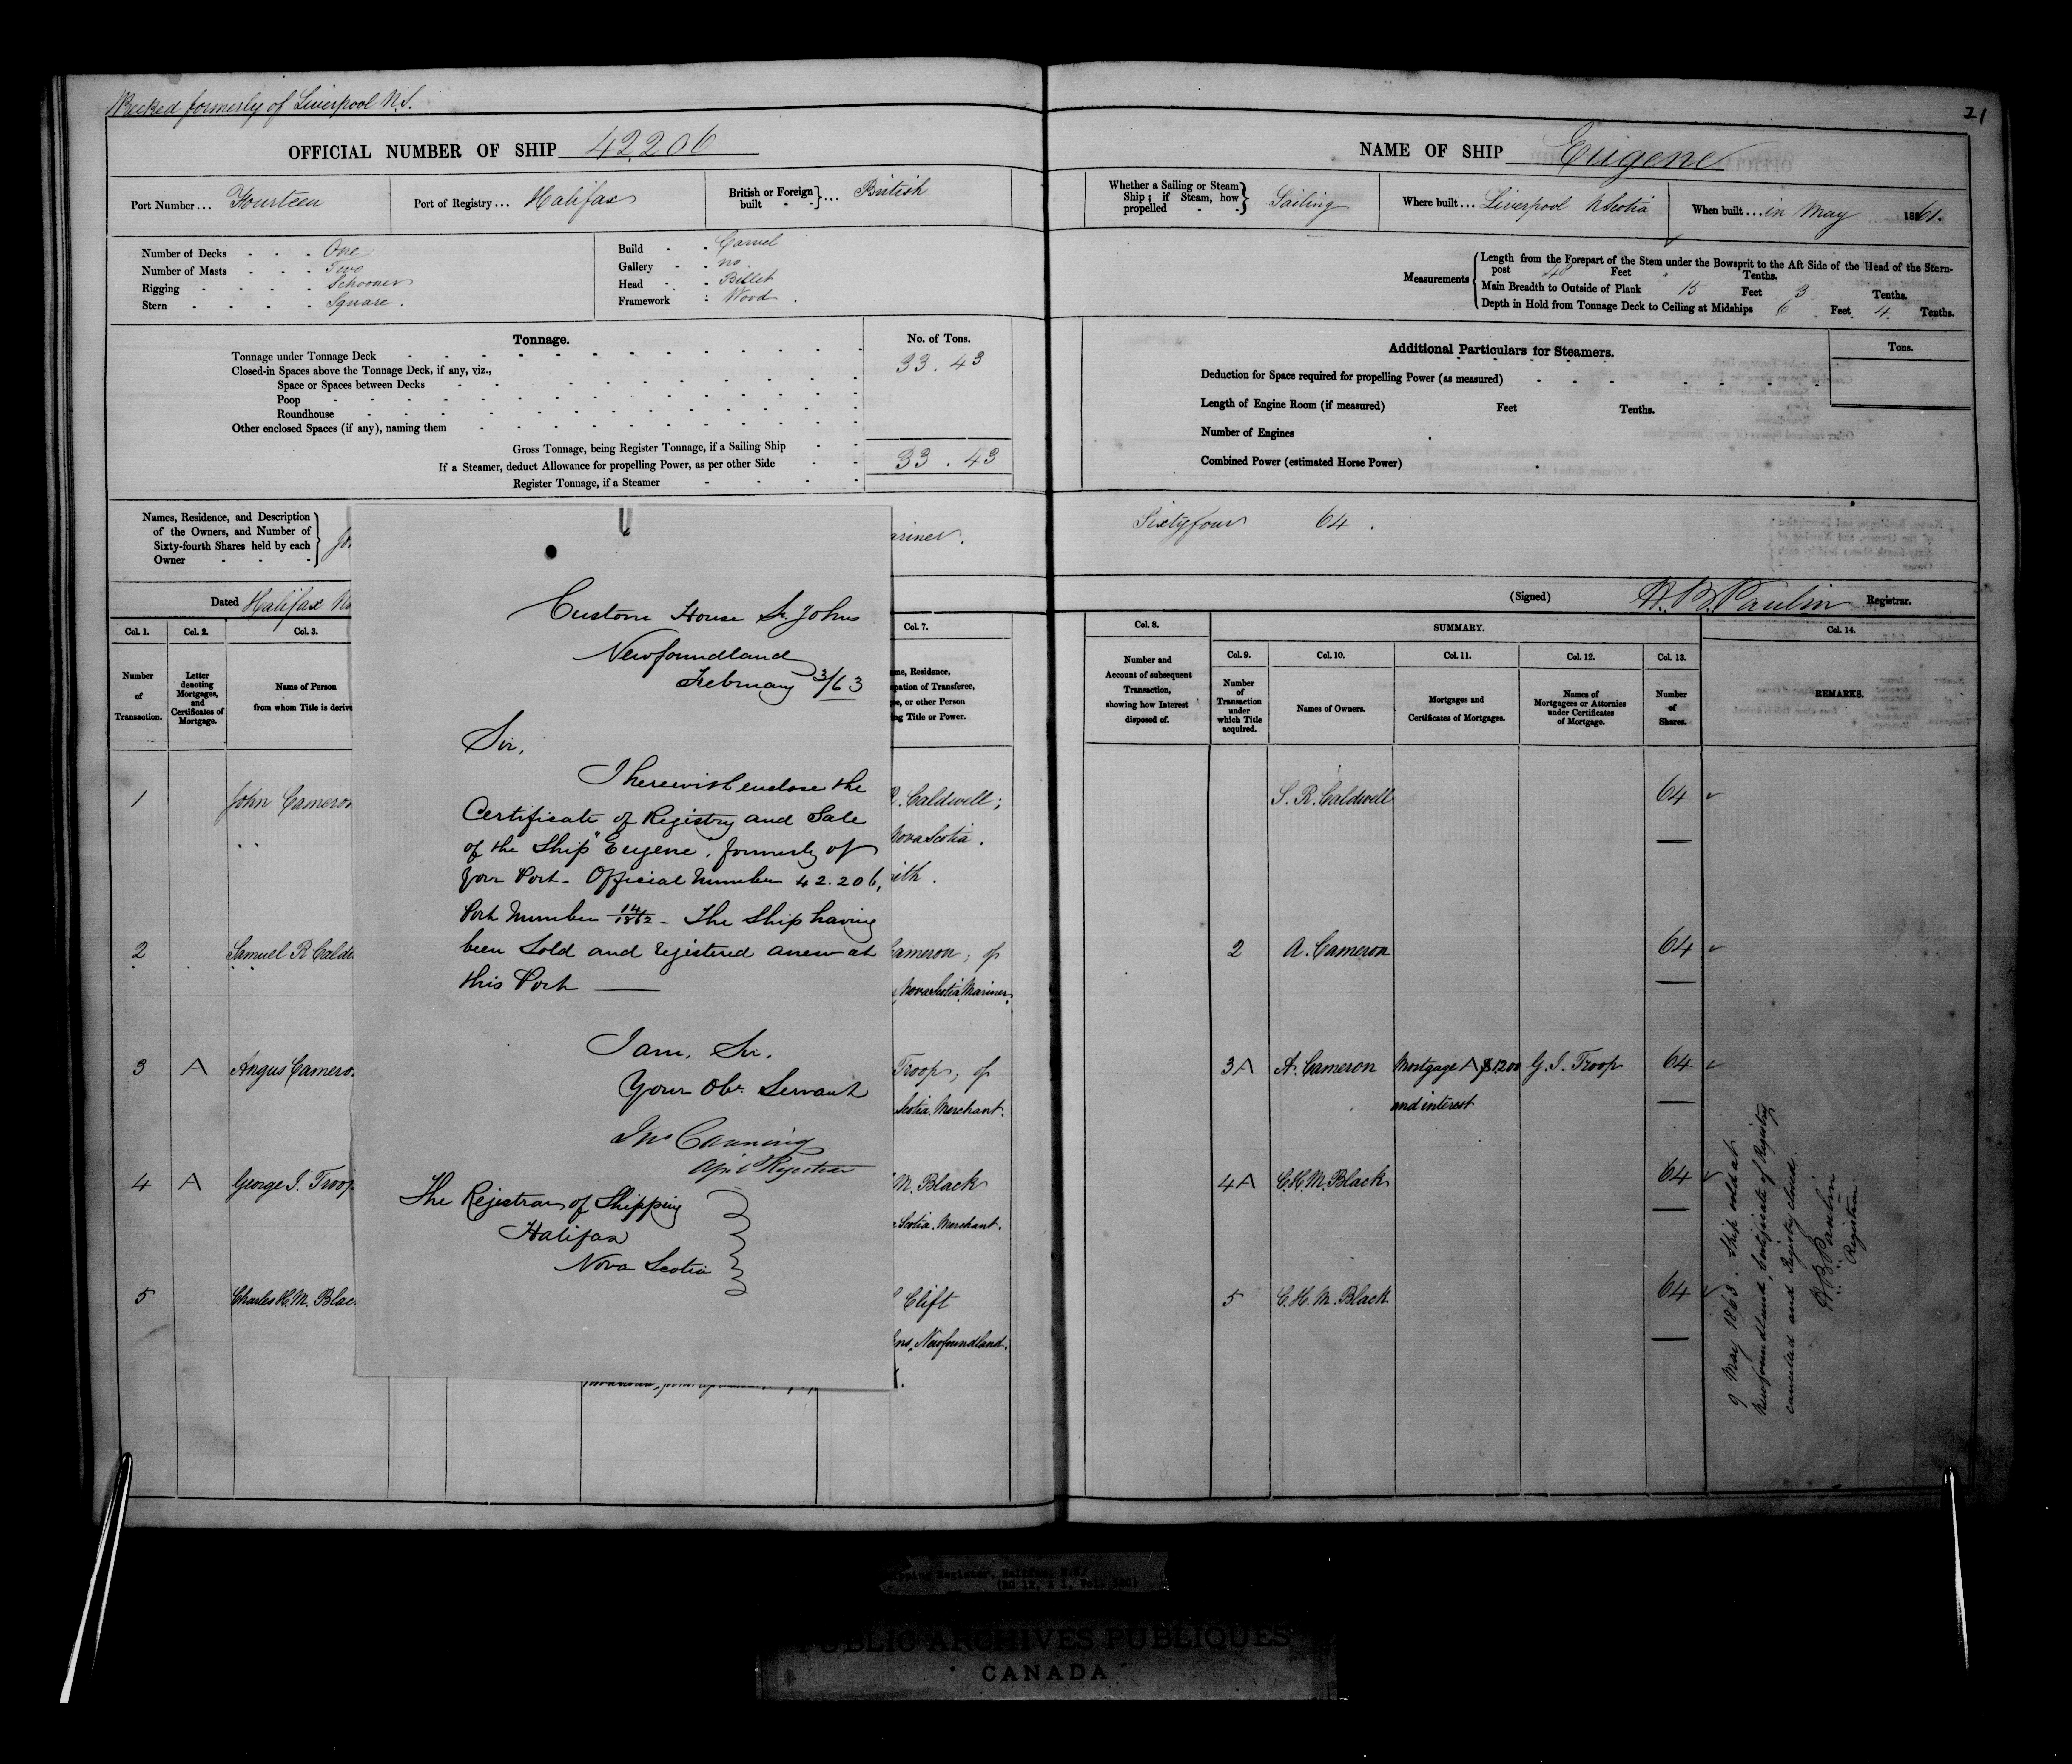 Wrecked formerly of Liverpool N.S.
OFFICIAL NUMBER OF SHIP 42206
Port Number... Fourteen
Port of Registry... Halifax
British or Foreign built - - } ... British
Number of Decks - - - One
Number of Masts - - - Two
Rigging - - - - Schooner
Stern - - - - Square.
Build - - Carvel
Gallery - - no
Head - - Billet
Framework : Wood.
Tonnage.
No. of Tons.
Tonnage under Tonnage Deck 33.43
Closed-in Spaces above the Tonnage Deck, if any, viz.,
Space or Spaces between Decks
Poop
Roundhouse
Other enclosed Spaces (if any), naming them
Gross Tonnage, being Register Tonnage, if a Sailing Ship
If a Steamer, deduct Allowance for propelling Power, as per other Side 33.43
Register Tonnage, if a Steamer
Names, Residence, and Description
of the Owners, and Number of
Sixty-fourth Shares held by each
Owner
ariner.
Dated Halifax
Col. 1.
Col. 2.
Col. 3.
Col. 7.
Number
of
Transaction.
Letter
denoting
Mortgages,
and
Certificates of
Mortgage.
Name of Person
from whom Title is deriv
me, Residence,
pation of Transferee,
or other Person
ng Title or Power.
1 John Cameron
R. Caldwell;
Nova Scotia.
ith.
2 Samuel R Caldw
Cameron; of
Nova Scotia, Mariner.
3 A Angus Camero
Troop; of
Scotia. Merchant.
4 A George J. Troop
M. Black
Scotia. Merchant.
5 Charles H.M. Blac
Clift
ns, Newfoundland.
Custom House St. Johns
Newfoundland
February 3/63
Sir,
I herewith enclose the
Certificate of Registry and Sale
of the Ship "Eugene", formerly of
your Port - Official Number 42.206,
Port Number 14/1862 - The Ship having
been Sold and registered anew at
this Port —
I am, Sir,
Your Obt. Servant
Jno Canning
Registrar
The Registrar of Shipping
Halifax
Nova Scotia
21
NAME OF SHIP Eugene
Whether a Sailing or Steam
Ship; if Steam, how
propelled - - } Sailing
Where built ... Liverpool N Scotia
When built ... in May 1861.
Measurements
Length from the Forepart of the Stem under the Bowsprit to the Aft Side of the Head of the Stern-
post 48 Feet " Tenths.
Main Breadth to Outside of Plank 15 Feet 3 Tenths.
Depth in Hold from Tonnage Deck to Ceiling at Midships 6 Feet 4 Tenths.
Additional Particulars for Steamers.
Tons.
Deduction for Space required for propelling Power (as measured)
Length of Engine Room (if measured) Feet Tenths.
Number of Engines
Combined Power (estimated Horse Power)
Sixty four 64.
(Signed) H. B. Paulin Registrar.
Col. 8.
SUMMARY.
Col. 14.
Col. 9.
Col. 10.
Col. 11.
Col. 12.
Col. 13.
Number and
Account of subsequent
Transaction,
showing how Interest
disposed of.
Number
of
Transaction
under
which Title
acquired.
Names of Owners.
Mortgages and
Certificates of Mortgages.
Names of
Mortgagees or Attornies
under Certificates
of Mortgage.
Number
of
Shares.
REMARKS.
S. R. Caldwell 64
2 A. Cameron 64
3A A. Cameron Mortgage A $1200 G. J. Troop 64
and interest
4A C. H. M. Black 64
5 C. H. M. Black 64
9 May 1863. Ship sold at
Newfoundland, Certificate of Registry
cancelled and Registry closed.
H. B. Paulin
Registrar
Shipping Register, Halifax, N.S.
(RG 12, A 1, Vol. )
PUBLIC ARCHIVES PUBLIQUES
CANADA